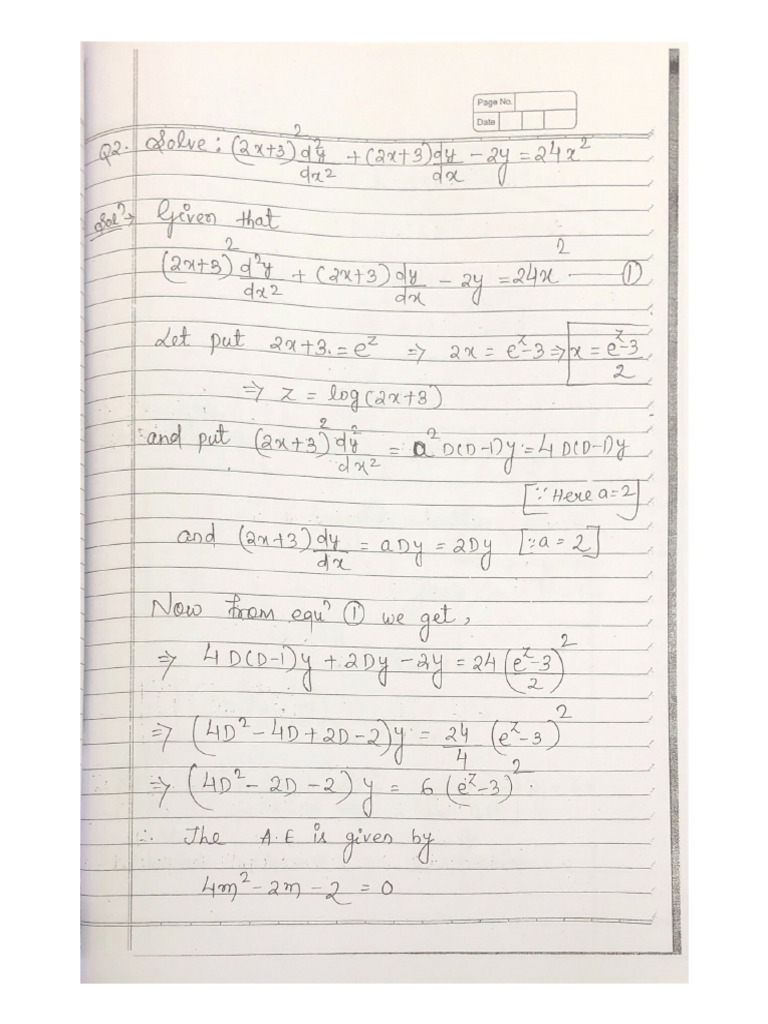 Page No.
Date
Q2. Solve: (2x+3)² d²y/dx² + (2x+3) dy/dx - 2y = 24x²
Solⁿ→ Given that
(2x+3)² d²y/dx² + (2x+3) dy/dx - 2y = 24x² —— ①
Let put 2x+3 = e^z ⇒ 2x = e^z-3 ⇒ x = (e^z-3)/2
⇒ z = log(2x+3)
and put (2x+3)² d²y/dx² = a² D(D-1)y = 4 D(D-1)y
[∵ Here a=2]
and (2x+3) dy/dx = aDy = 2Dy [∵ a = 2]
Now from equⁿ ① we get,
⇒ 4D(D-1)y + 2Dy - 2y = 24 ((e^z-3)/2)²
⇒ (4D² - 4D + 2D - 2)y = 24/4 (e^z-3)²
⇒ (4D² - 2D - 2) y = 6 (e^z-3)².
∴ The A.E is given by
4m² - 2m - 2 = 0